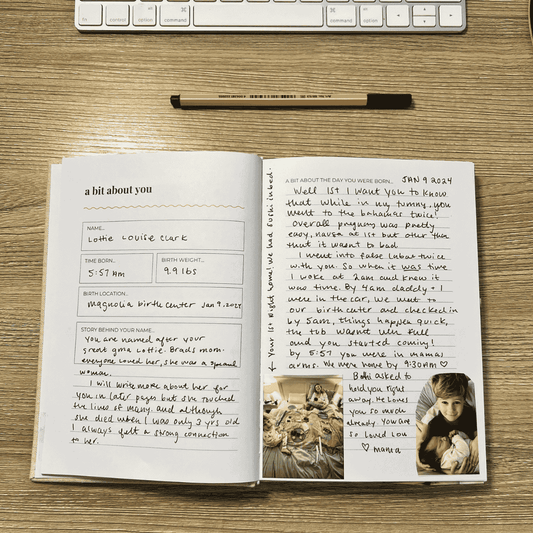 command
option
command
command
option
a bit about you
NAME...
Lottie Louise Clark
TIME BORN...
5:57 am
BIRTH WEIGHT...
9.9 lbs
BIRTH LOCATION...
magnolia birth center Jan 9.2024
STORY BEHIND YOUR NAME...
you are named after your
great gma Lottie. Brads mom.
everyone loved her, she was a special
woman.
I will write more about her for
you in later pages but she touched
the lives of many. and although
she died when I was only 3 yrs old
I always felt a strong connection
to her.
← Your 1st night home! We had sushi in bed.
A BIT ABOUT THE DAY YOU WERE BORN...
JAN 9 2024
Well 1st I want you to know
that while in my tummy, you
went to the bahamas twice!
overall pregnancy was pretty
easy, nausea at 1st but other than
that it wasnt to bad
I went into false labor twice
with you. So when it was time
I woke at 2am and knew it
was time. By 4am daddy + I
were in the car, we went to
our birth center and checked in
by 5am, things happen quick,
the tub wasn't even full
and you started coming!
by 5:57 you were in mamas
arms. We were home by 9:30am ♡
asked to
hold you right
away. He loves
you so much
already. You are
so loved
♡ mama